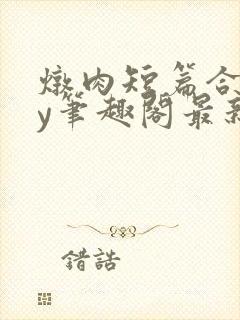 燉肉短篇合
y筆趣閣最新
錯誥